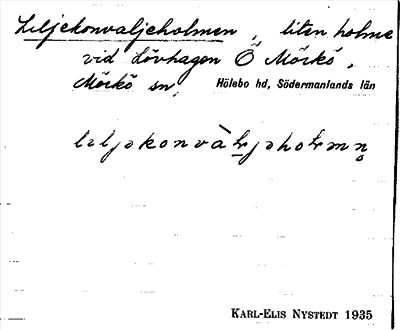 Liljekonvaljeholmen, liten holme
vid Lövhagen Ö Mörkö,
Mörkö sn, Hölebo hd, Södermanlands län
KARL-ELIS NYSTEDT 1935